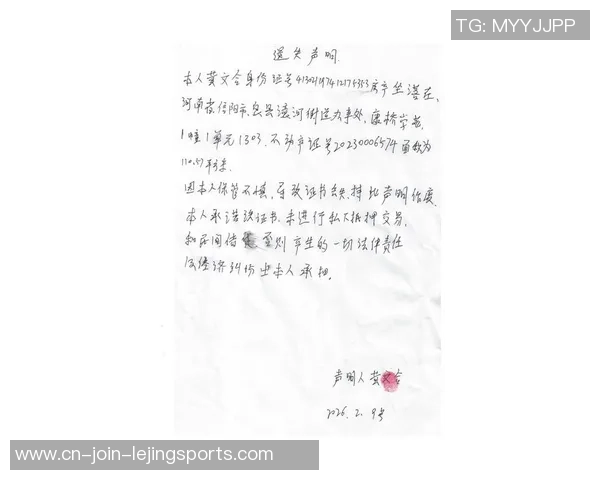 TG: MYYJJPP
遗失声明
本人黄文合身份证号413021197412175353房产坐落在,
河南省信阳市,息县濮河街道办事处,康桥学苑,
1幢1单元1303.不动产证号20230006574面积为
110.57平方米.
因本人保管不慎,导致证书丢失,特此声明作废,
本人承诺该证书.未进行私下抵押交易,
和民间借 否则产生的一切法律责任
及经济纠纷由本人承担,
声明人黄文合
2026.2.9号
www.cn-join-lejingsports.com